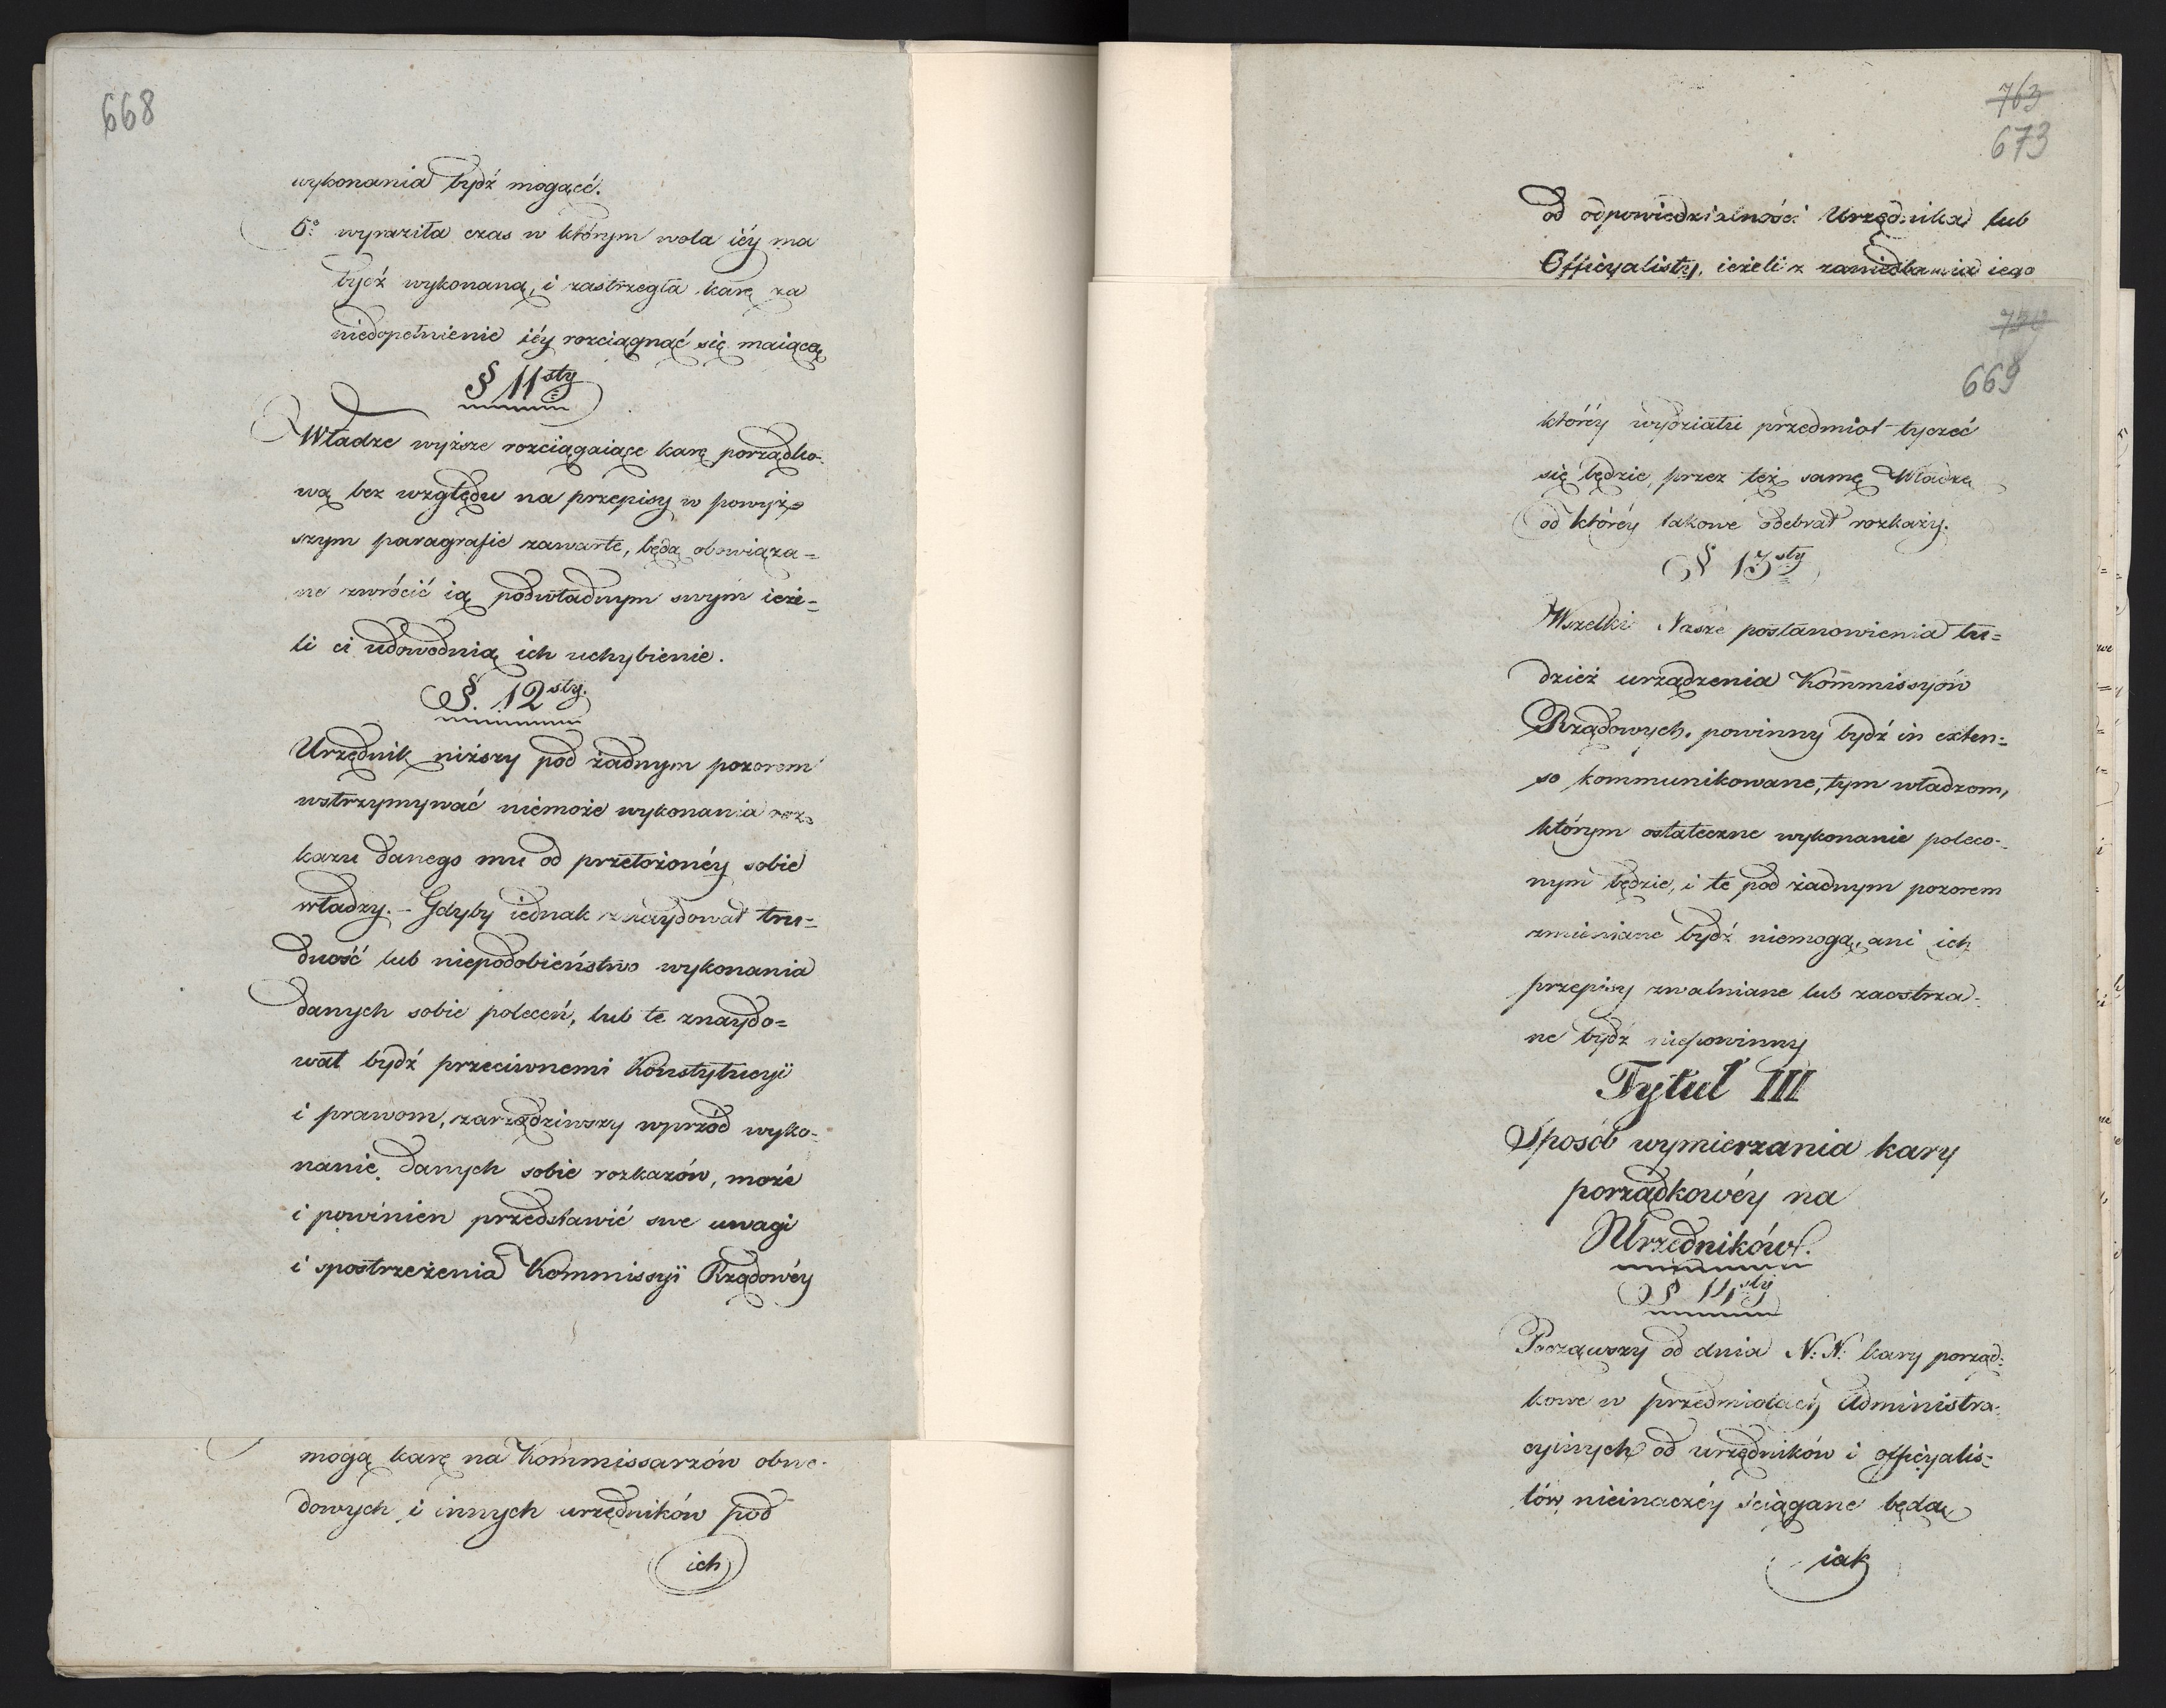 668
wykonania bydź mogącć.
5º wyraziła czas w którym wola iéy ma
bydź wykonaną, i zastrzegła karę za
niedopełnienie iéy rozciągnąć się maiącą
§ 11sty
Władze wyższe rozciągaiące karę porządko-
wą bez względu na przepisy w powyż-
szym paragrafie zawarte, będą obowiąza=
ne zwrócić ią podwładnym swym ieże=
li ci udowodnią ich uchybienie.
§. 12sty.
Urzędnik niższy pod żadnym pozorem
wstrzymywać niemoże wykonania roz=
kazu danego mu od przełożonéy sobie
władzy. – Gdyby iednak znaydował tru=
dność lub niepodobieństwo wykonania
danych sobie poleceń, lub te znaydo=
wał bydź przeciwnemi Konstytucyi
i prawom, zarządziwszy wprzód wyko-
nanie danych sobie rozkazów, może
i powinien przedstawić swe uwagi
i spostrzeżenia Kommissyi Rządowéy
mogą karę na Kommissarzów obwo-
dowych i innych urzędników pod
ich
763
673
od odpowiedzialności Urzędnika lub
Officyalisty, ieżeli z zaniedbania iego
669
któréy wydziału przedmiot tyczeć
się będzie, przez też samę Władzę
od któréy takowe odebrał rozkazy.
§ 13sty
Wszelkie Nasze postanowienia tu=
dzież urządzenia Kommissyów
Rządowych, powinny bydź in exten=
so kommunikowane, tym władzom,
którym ostateczne wykonanie poleco-
nym będzie, i te pod żadnym pozorem
zmieniane bydź niemogą, ani ich
przepisy zwalniane lub zaostrza-
ne bydź niepowinny
Tytuł III
Sposób wymierzania kary
porządkowéy na
Urzędników.
§ 14sty
Począwszy od dnia N: N: kary porząd=
kowe w przedmiotach Administra-
cyinych od urzędników i officyalis=
tów nieinaczéy ściągane będą
iak